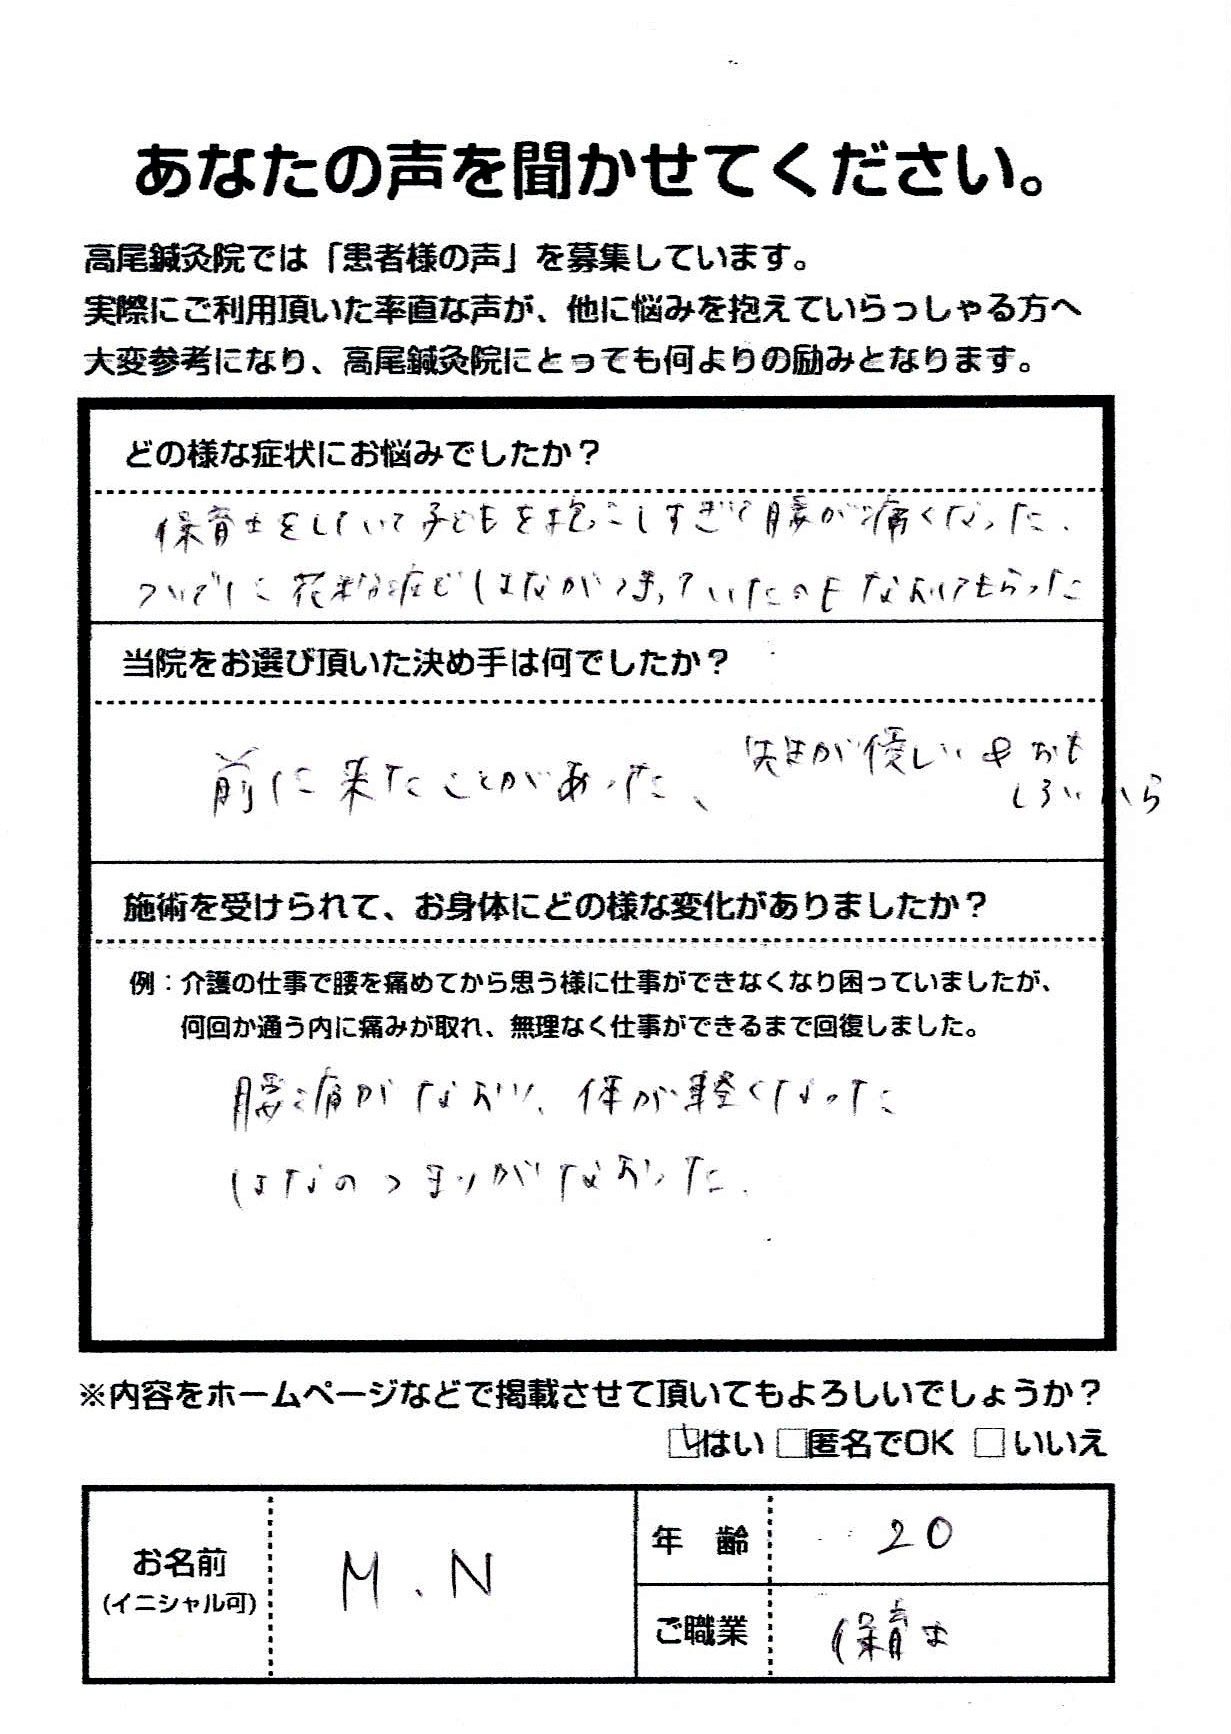 あなたの声を聞かせてください。
高尾鍼灸院では「患者様の声」を募集しています。
実際にご利用頂いた率直な声が、他に悩みを抱えていらっしゃる方へ
大変参考になり、高尾鍼灸院にとっても何よりの励みとなります。
どの様な症状にお悩みでしたか？
保育士をしていて子どもを抱っこしすぎて腰が痛くなった、
ついでに花粉症ではながつまっていたのもなおしてもらった
当院をお選び頂いた決め手は何でしたか？
前に来たことがあった、先生が優しい&おも
しろいから
施術を受けられて、お身体にどの様な変化がありましたか？
例：介護の仕事で腰を痛めてから思う様に仕事ができなくなり困っていましたが、
何回か通う内に痛みが取れ、無理なく仕事ができるまで回復しました。
腰痛がなおり、体が軽くなった
はなのつまりがなおった.
※内容をホームページなどで掲載させて頂いてもよろしいでしょうか？
はい 匿名でOK いいえ
お名前 M.N 年 齢 20
(イニシャル可)
ご職業 保育士